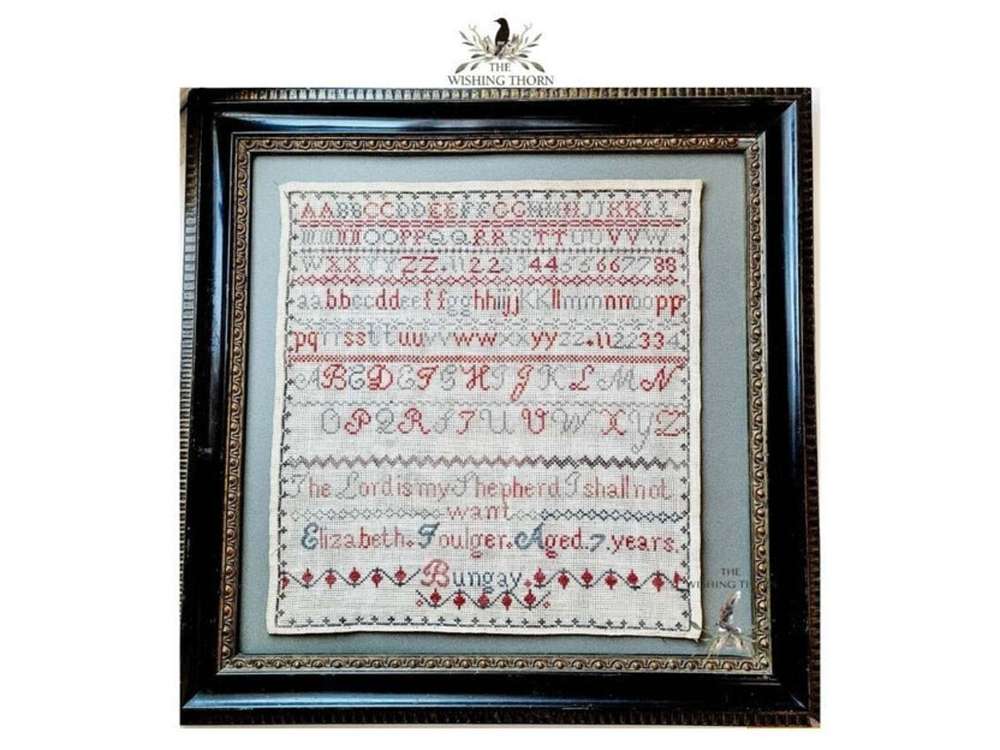 THE
WISHING THORN
AABBCCDDEEFFGGHHIIJJKKLL
NNOOPPQQRRSSTTUUVVW
WXXYYZZ.1122334455667788
aabbccddeeffgghhiijjKKllmmnnoopp
pqrrssttuuvvwwxxyyzz.1122334
ABCDEFGHIJKLMN
OPQRSTUVWXYZ
The Lord is my Shepherd I shall not
want
Elizabeth. Foulger. Aged. 7. years.
Bungay.
THE
WISHING TH